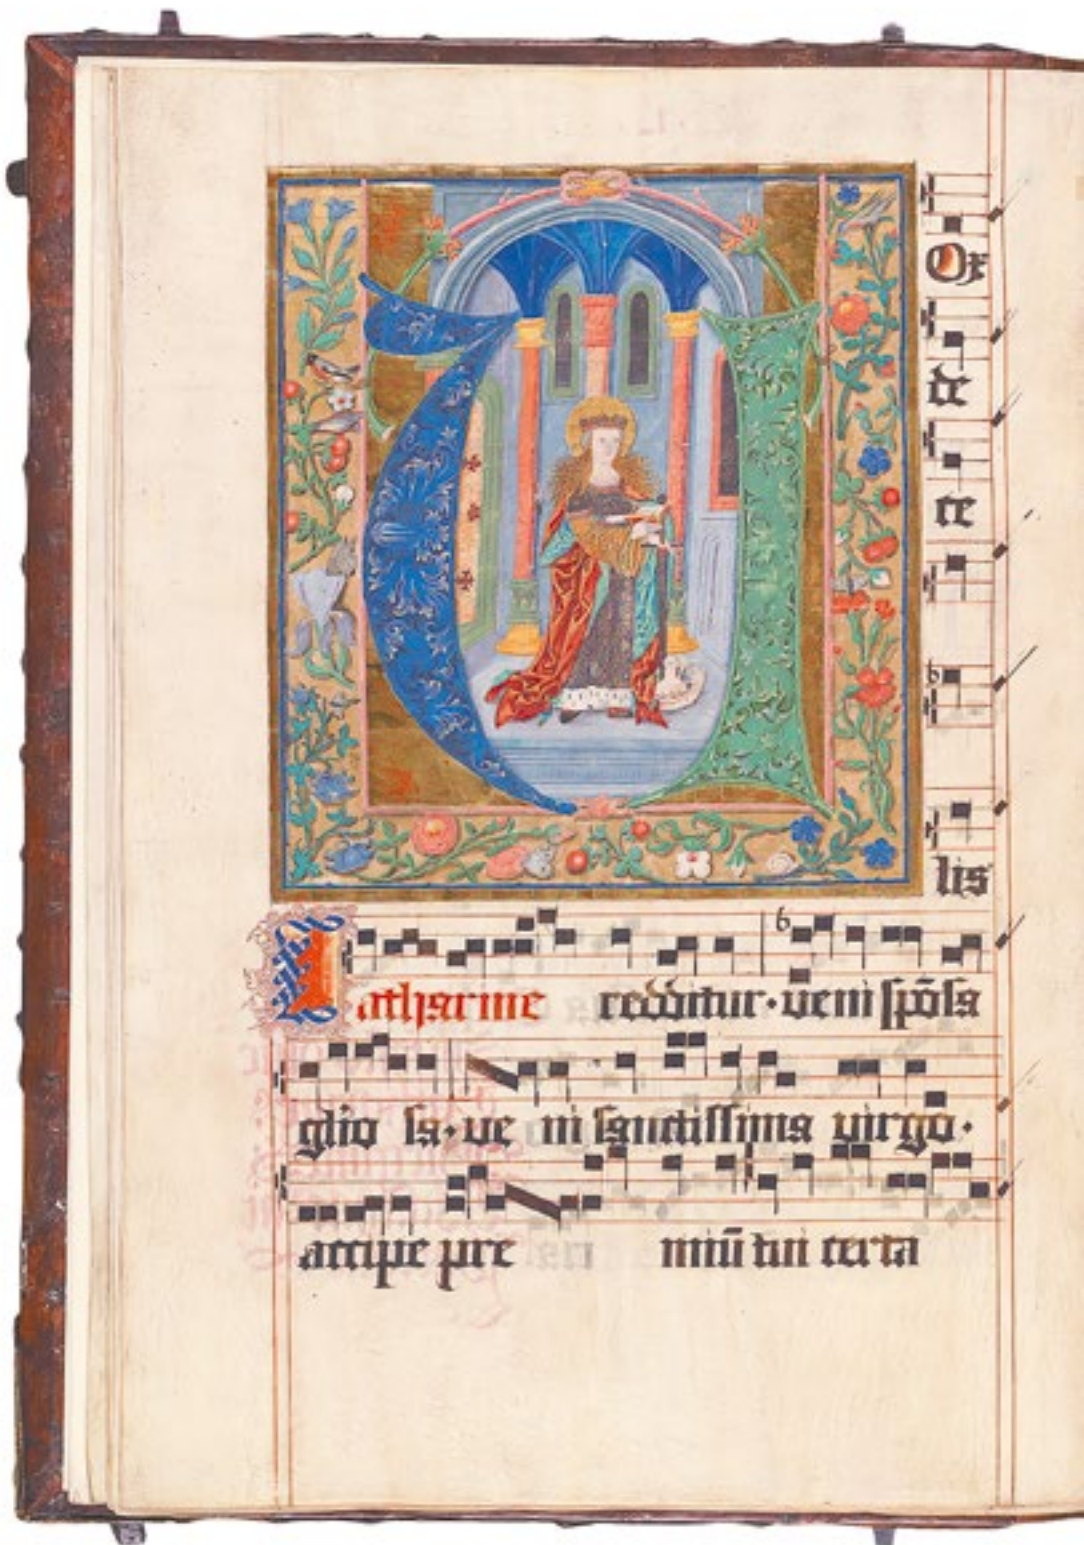 VOx
de
ce
lis
katharine redditur. veni spōsa
glio sa. ve ni sanctissima virgo.
accipe pre miū tui certa